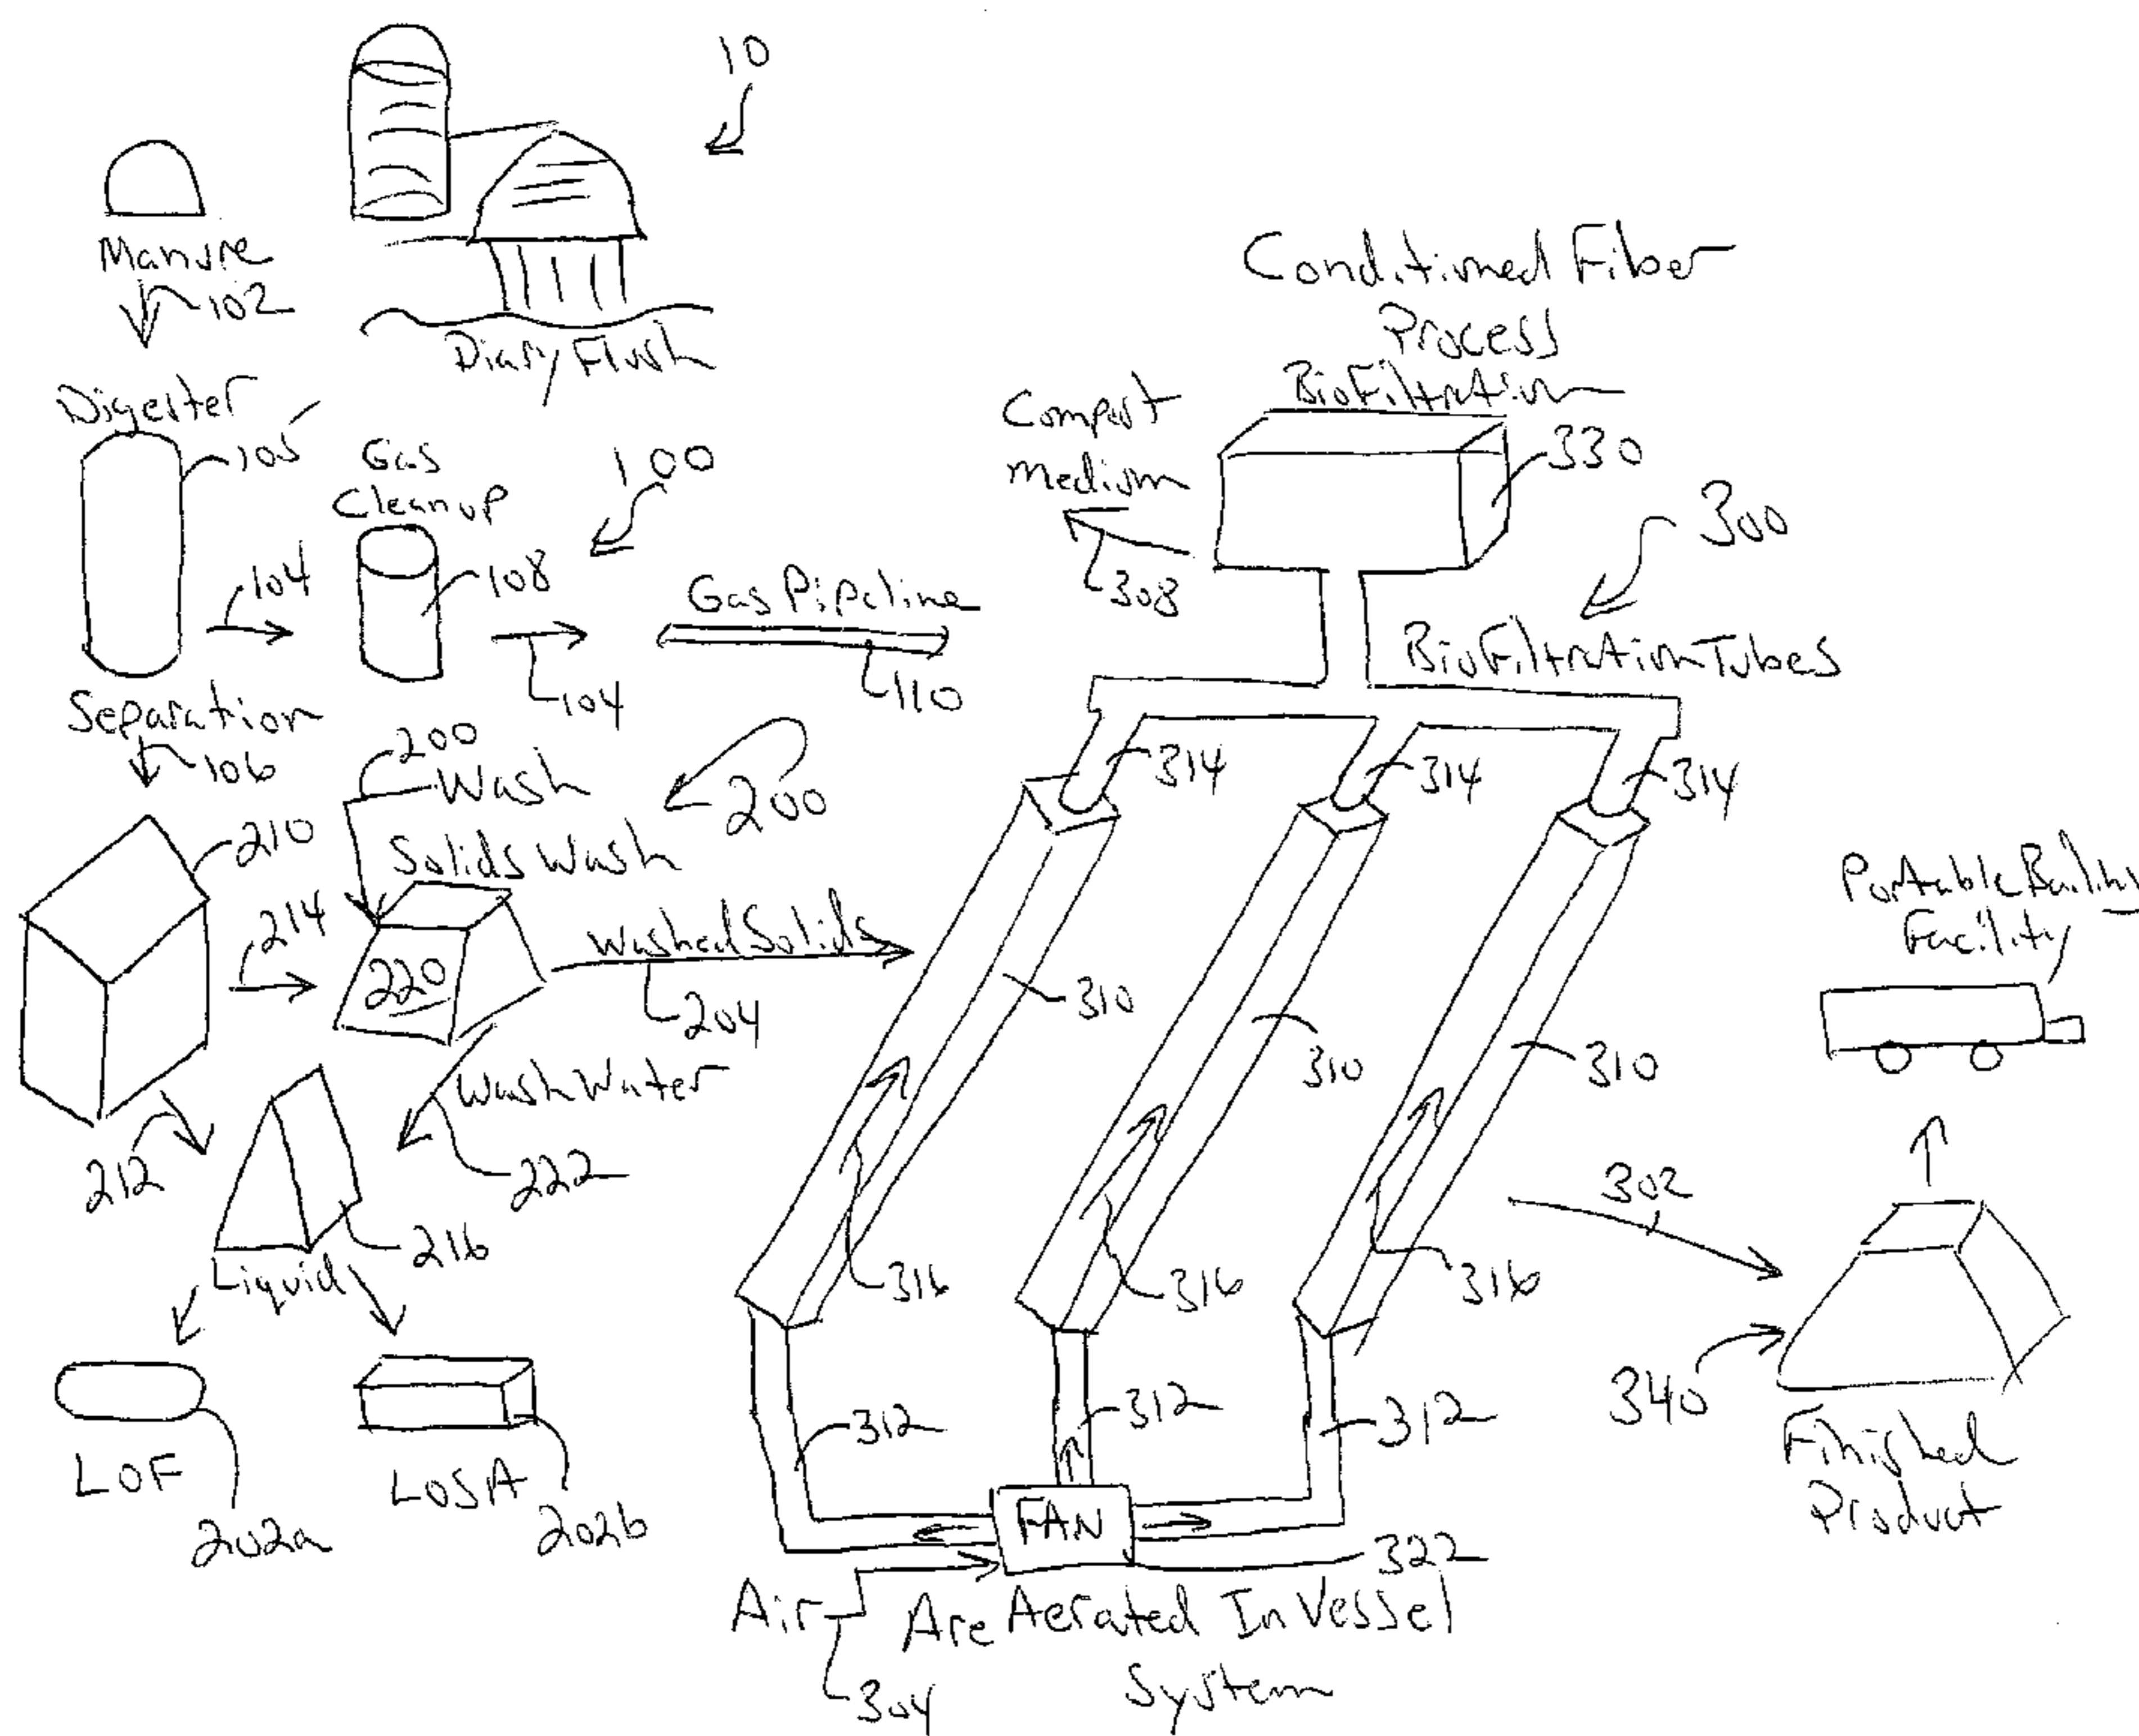 10
Manure
102
Diary Flush
Digester
105
Gas
Cleanup
108
100
104
104
Gas Pipeline
110
Separation
106
200
Wash
200
210
214
Solids Wash
220
Washed Solids
204
Wash Water
222
212
216
Liquid
LOF
202a
LOSA
202b
Conditioned Fiber
Process
BioFiltration
330
Compost
Medium
308
300
BioFiltration Tubes
314
314
314
310
310
310
316
316
316
312
312
312
FAN
322
Air
304
Are Aerated In Vessel
System
Portable Bailing
Facility
302
340
Finished
Product